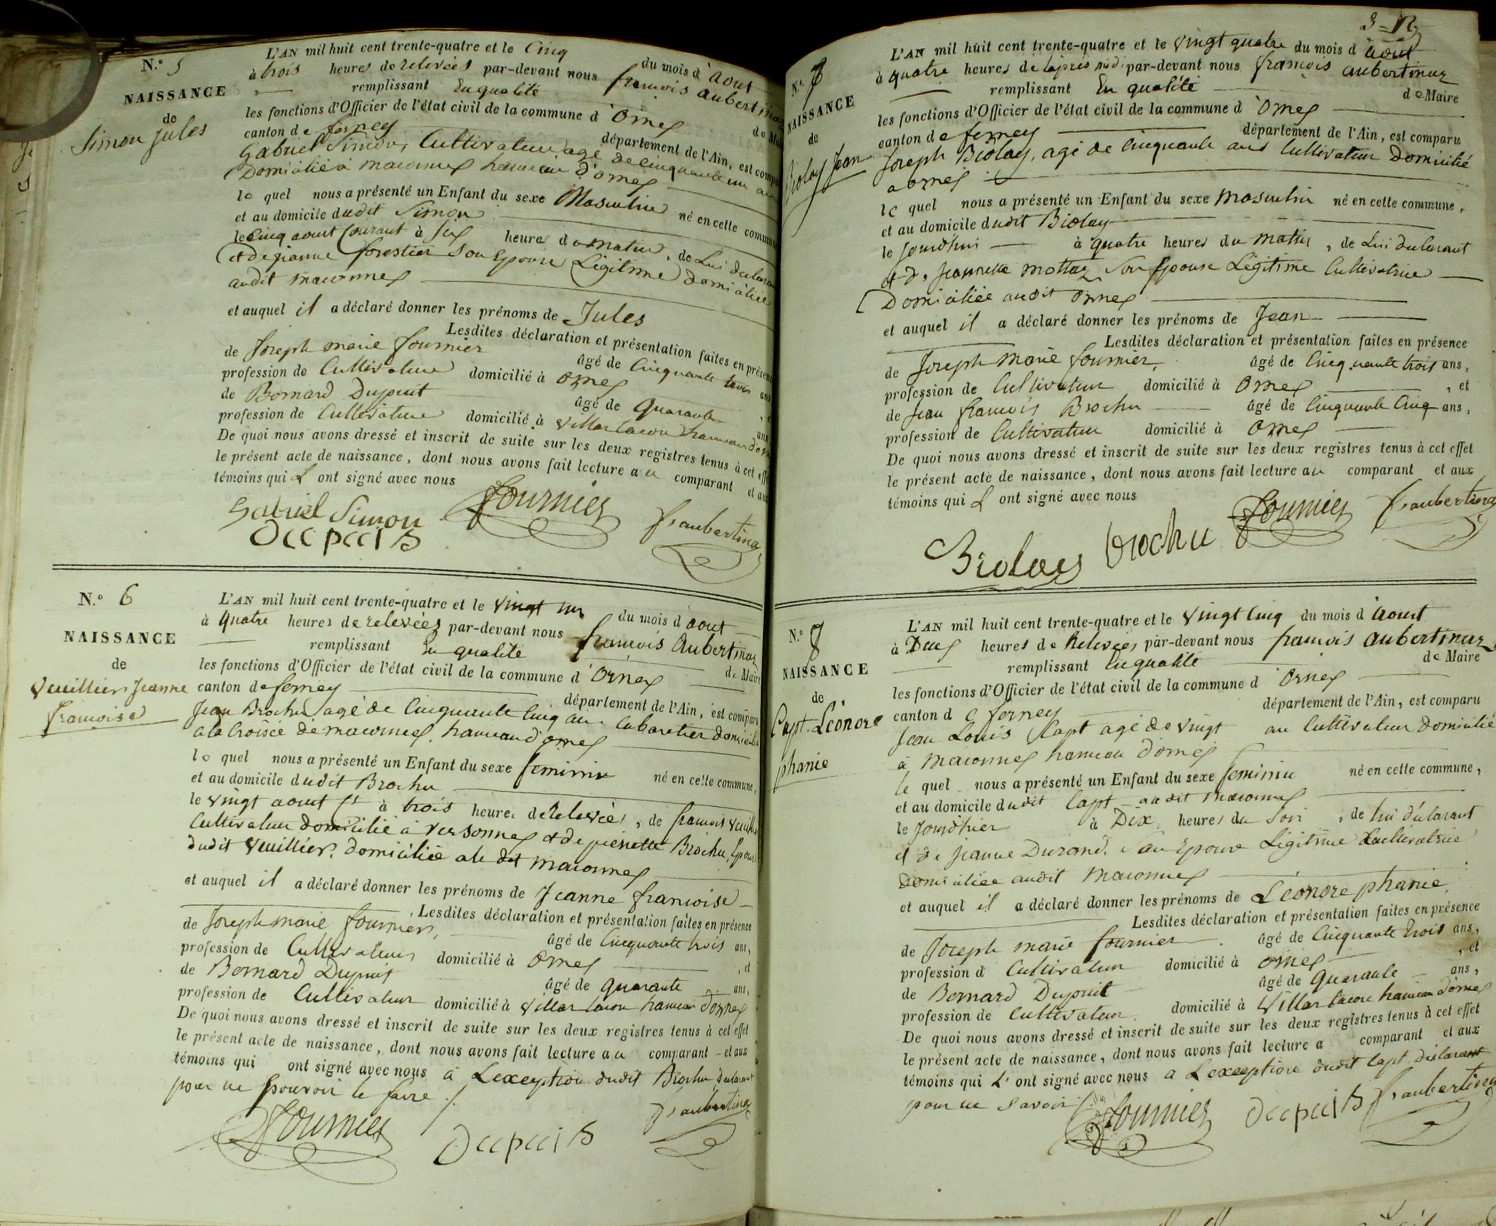 N.º 5
NAISSANCE
de
Simon Jules
L'AN mil huit cent trente-quatre et le Cinq du mois d'aout
à trois heures de relevées par-devant nous françois aubertin
remplissant En qualité de Maire
les fonctions d'Officier de l'état civil de la commune d'Ornex
canton de ferney département de l'Ain, est comparu
Gabriel Simon, Cultivateur agé de Cinquante un ans
Domicilié à maconnex hameau d'ornex
le quel nous a présenté un Enfant du sexe Masculin né en cette commune
et au domicile dudit Simon
le Cinq aout Courant à Six heures du matin, de Lui declarant
et de jeanne forestier Son Epouse Légitime domiciliée
audit maconnex
et auquel il a déclaré donner les prénoms de Jules
Lesdites déclaration et présentation faites en présence
de Joseph marie fournier âgé de Cinquante trois ans
profession de Cultivateur domicilié à Ornex
de Bernard Dupuit âgé de quarante ans
profession de Cultivateur domicilié à Villar tacon hameau d'ornex
De quoi nous avons dressé et inscrit de suite sur les deux registres tenus à cet effet
le présent acte de naissance, dont nous avons fait lecture au comparant et aux
témoins qui L ont signé avec nous
Gabriel Simon fournier fs aubertin
Duepuits
N.º 6
NAISSANCE
de
Veuillier Jeanne
françoise
L'AN mil huit cent trente-quatre et le vingt un du mois d'aout
à quatre heures de relevées par-devant nous françois Aubertin
remplissant En qualité de Maire
les fonctions d'Officier de l'état civil de la commune d'Ornex
canton de ferney département de l'Ain, est comparu
Jean Brochu agé de Cinquante Cinq ans Cabaretier domicilié
à la Croisée de maconnex hameau d'ornex
le quel nous a présenté un Enfant du sexe feminin né en cette commune,
et au domicile dudit Brochu
le vingt aout à trois heures de Relevées, de françois Veuillier
Cultivateur domicilié à Versonnex et de pierrette Brochu, Epouse
dudit Veuillier, domiciliée au dit maconnex
et auquel il a déclaré donner les prénoms de Jeanne françoise
Lesdites déclaration et présentation faites en présence
de Joseph marie fournier, âgé de Cinquante trois ans,
profession de Cultivateur domicilié à Ornex, et
de Bernard Dupuit âgé de quarante ans,
profession de Cultivateur domicilié à Villar tacon hameau d'ornex
De quoi nous avons dressé et inscrit de suite sur les deux registres tenus à cet effet
le présent acte de naissance, dont nous avons fait lecture au comparant et aux
témoins qui ont signé avec nous à L'exception dudit Brochu declarant
pour ne pouvoir le faire
fournier Duepuits fs aubertin
N.º 7
NAISSANCE
de
Biolay Jean
L'AN mil huit cent trente-quatre et le vingt quatre du mois d'aout
à quatre heures de l'après midi par-devant nous françois aubertin
remplissant En qualité de Maire
les fonctions d'Officier de l'état civil de la commune d'Ornex
canton de ferney département de l'Ain, est comparu
Joseph Biolay, agé de Cinquante ans Cultivateur domicilié
a ornex
le quel nous a présenté un Enfant du sexe masculin né en cette commune,
et au domicile dudit Biolay
le Jourdhui à quatre heures du matin, de Lui declarant
et de Jeannette mottaz Son Epouse Légitime Cultivatrice
Domiciliée audit Ornex
et auquel il a déclaré donner les prénoms de Jean
Lesdites déclaration et présentation faites en présence
de Joseph marie fournier, âgé de Cinquante trois ans,
profession de Cultivateur domicilié à Ornex, et
de Jean françois Brochu âgé de Cinquante Cinq ans,
profession de Cultivateur domicilié à Ornex
De quoi nous avons dressé et inscrit de suite sur les deux registres tenus à cet effet
le présent acte de naissance, dont nous avons fait lecture au comparant et aux
témoins qui L ont signé avec nous
Biolay brochu fournier fs aubertin
N.º 8
NAISSANCE
de
Capt Léonore
phanie
L'AN mil huit cent trente-quatre et le vingt Cinq du mois d'aout
à Deux heures de Relevées par-devant nous françois aubertin
remplissant En qualité de Maire
les fonctions d'Officier de l'état civil de la commune d'Ornex
canton de ferney département de l'Ain, est comparu
Jean Louis Capt agé de vingt ans Cultivateur domicilié
à Maconnex hameau d'ornex
le quel nous a présenté un Enfant du sexe feminin né en cette commune,
et au domicile dudit Capt audit maconnex
le Jourdhier à Dix heures du Soir, de Lui déclarant
et de Jeanne Durand, Son Epouse Légitime Cultivatrice
Domiciliée audit Maconnex
et auquel il a déclaré donner les prénoms de Léonore phanie,
Lesdites déclaration et présentation faites en présence
de Joseph marie fournier âgé de Cinquante trois ans,
profession de Cultivateur domicilié à ornex, et
de Bernard Dupuit âgé de quarante ans,
profession de Cultivateur domicilié à Villar tacon hameau d'ornex
De quoi nous avons dressé et inscrit de suite sur les deux registres tenus à cet effet
le présent acte de naissance, dont nous avons fait lecture a comparant et aux
témoins qui L' ont signé avec nous a L'exception dudit Capt déclarant
pour ne savoir
fournier Duepuits fs aubertin